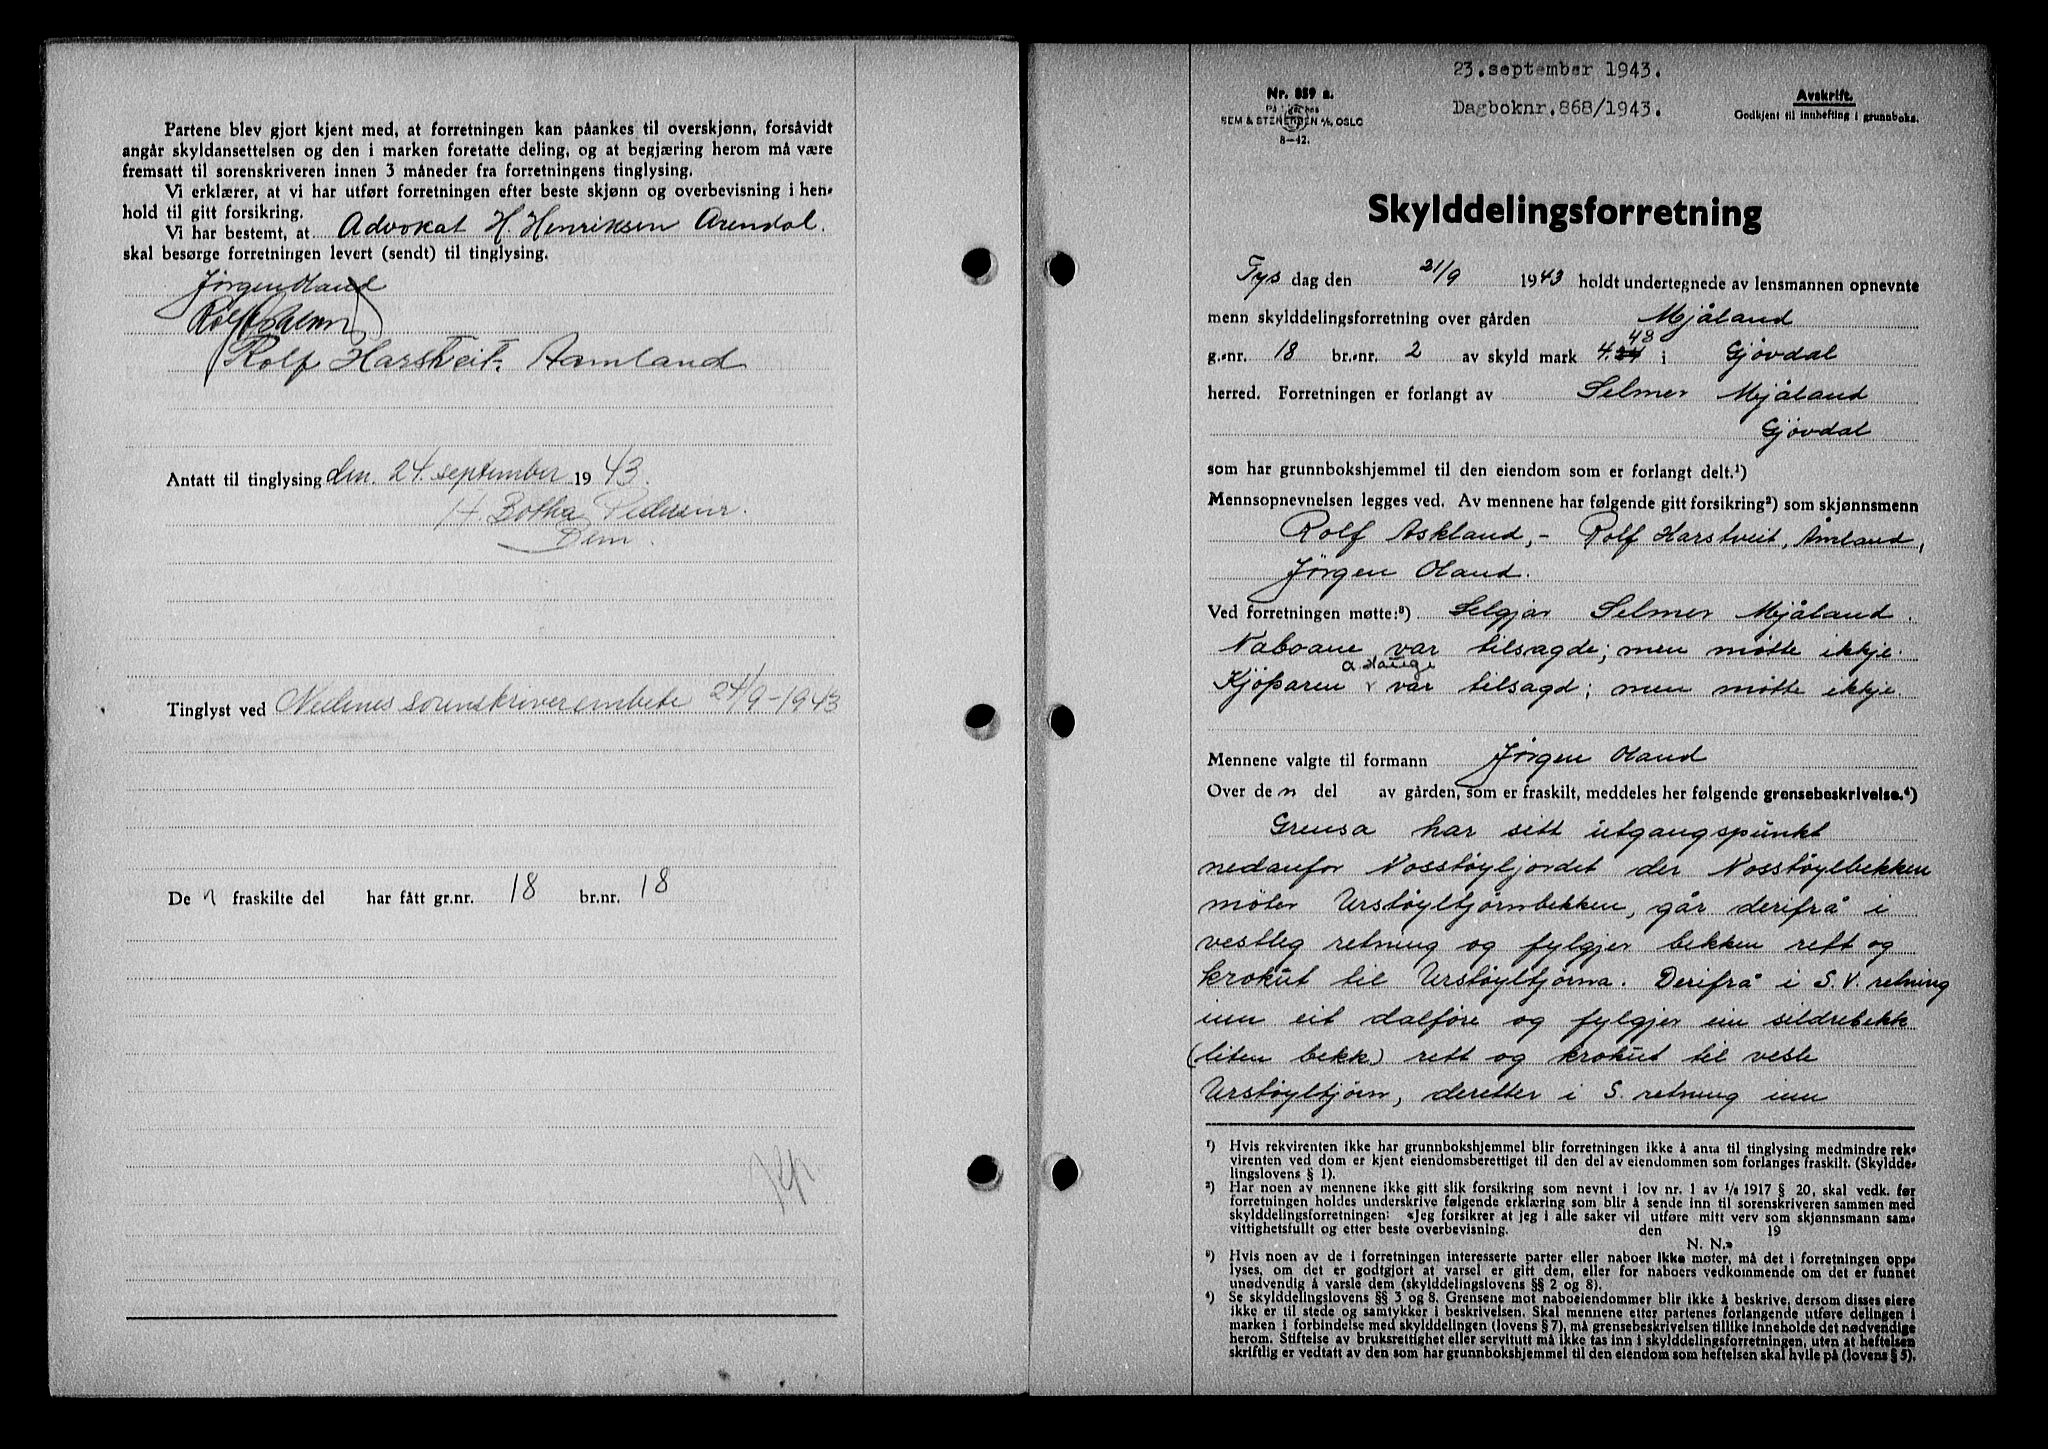 Partene blev gjort kjent med, at forretningen kan påankes til overskjønn, forsåvidt
angår skyldansettelsen og den i marken foretatte deling, og at begjæring herom må være
fremsatt til sorenskriveren innen 3 måneder fra forretningens tinglysing.
Vi erklærer, at vi har utført forretningen efter beste skjønn og overbevisning i hen-
hold til gitt forsikring.
Vi har bestemt, at Advokat H. Henriksen Arendal.
skal besørge forretningen levert (sendt) til tinglysing.
Jørgen Oland
Rolf Askland
Rolf Harstveit, Aamland
Antatt til tinglysing den 24. september 1943.
H. Botha Pedersen
Dem.
Tinglyst ved Nedenes sorenskriverembete 24/9-1943
De n fraskilte del har fått gr.nr. 18 br.nr. 18
23.september 1943.
Nr. 859 a.
Dagboknr.868/1943.
SEM & STENERSEN A/S, OSLO
8—42.
Avskrift.
Godkjent til innhefting i grunnboka.
Skylddelingsforretning
Tys dag den 21/9 1943 holdt undertegnede av lensmannen opnevnte
menn skylddelingsforretning over gården Mjåland
g.nr. 18 br.nr. 2 av skyld mark 4.48 i Gjøvdal
herred. Forretningen er forlangt av Selmer Mjåland
Gjøvdal
som har grunnbokshjemmel til den eiendom som er forlangt delt.¹)
Mennsopnevnelsen legges ved. Av mennene har følgende gitt forsikring²) som skjønnsmenn
Rolf Askland, - Rolf Harstveit, Åmland,
Jørgen Oland.
Ved forretningen møtte:³) Selgjar Selmer Mjåland.
Naboane var tilsagde; men møtte ikkje.
Kjøparen A Hauge var tilsagd; men møtte ikkje.
Mennene valgte til formann Jørgen Oland
Over de n del av gården, som er fraskilt, meddeles her følgende grensebeskrivelse.⁴)
Grensa har sitt utgangspunkt
nedanfor Nosstøyljordet der Nosstøylbekken
møter Urstøyltjørnbekken, går derifrå i
vestleg retning og fylgjer bekken rett og
krokut til Urstøyltjørna. Derifrå i S.V. retning
inn eit dalføre og fylgjer ein sildrebekk
(liten bekk) rett og krokut til vesle
Urstøyltjørn, deretter i S. retning inn
¹) Hvis rekvirenten ikke har grunnbokshjemmel blir forretningen ikke å anta til tinglysing medmindre rek-
virenten ved dom er kjent eiendomsberettiget til den del av eiendommen som forlanges fraskilt. (Skyldde-
lingslovens § 1).
²) Har noen av mennene ikke gitt slik forsikring som nevnt i lov nr. 1 av 1/6 1917 § 20, skal vedk. før
forretningen holdes underskrive følgende erklæring som blir å sende inn til sorenskriveren sammen med
skylddelingsforretningen: «Jeg forsikrer at jeg i alle saker vil utføre mitt verv som skjønnsmann sam-
vittighetsfullt og etter beste overbevisning. den 19
N. N.»
³) Hvis noen av de i forretningen interesserte parter eller naboer ikke møter, må det i forretningen opp-
lyses, om det er godtgjort at varsel er gitt dem, eller for naboers vedkommende om det er funnet
unødvendig å varsle dem (skylddelingslovens §§ 2 og 8).
⁴) Se skylddelingslovens §§ 3 og 8. Grensene mot naboeiendommer blir ikke å beskrive, dersom disses eiere
ikke er til stede og samtykker i beskrivelsen. Skal mennene etter partenes forlangende utføre delingen i
marken i forbindelse med skylddelingen (lovens § 7), må grensebeskrivelsen tillike inneholde det nødvendige
herom. Stiftelse av bruksrettighet eller servitutt må ikke tas inn i skylddelingsforretningen, uten at heftelsen
skriftlig er vedtatt av den som har grunnbokshjemmel til den eiendom som heftelsen skal hvile på (lovens § 5).